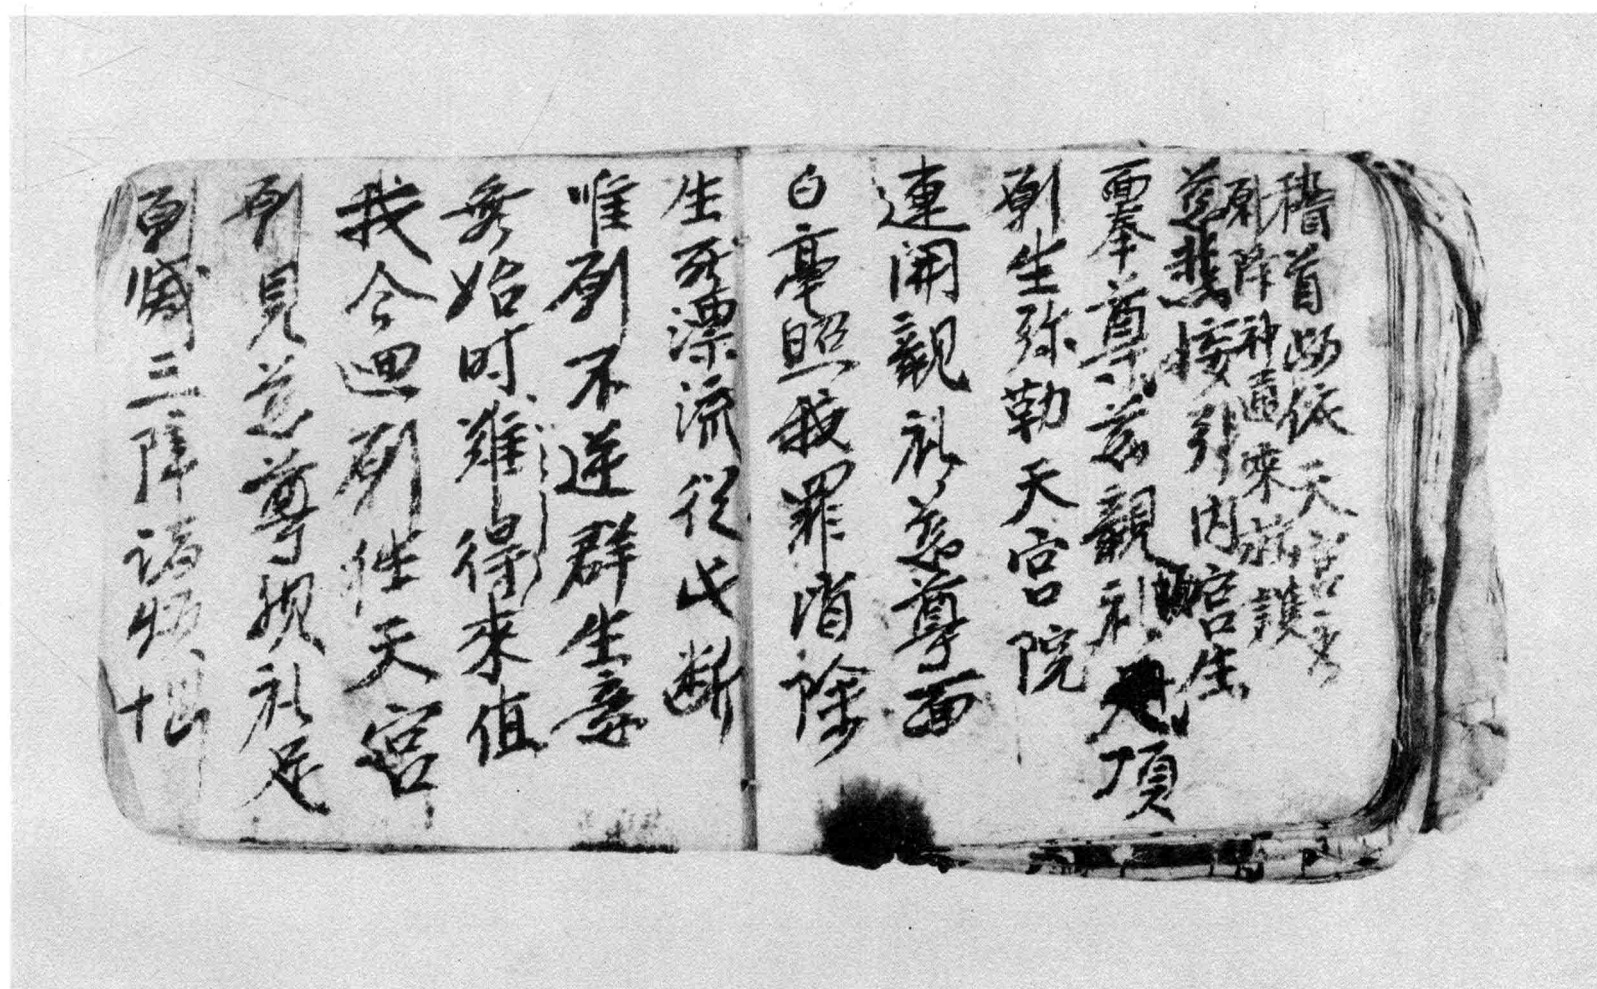 稽首歸依天宮主
願降神通來救護
慈悲接引內宮生
面奉尊慈親礼足頂
願生弥勒天宮院
連開親礼慈尊面
白毫照我罪消除
生死漂流從此断
唯願不逆群生意
無始时難得來值
我今迴願往天宮
願見慈尊親礼足
願滅三障諸煩惱